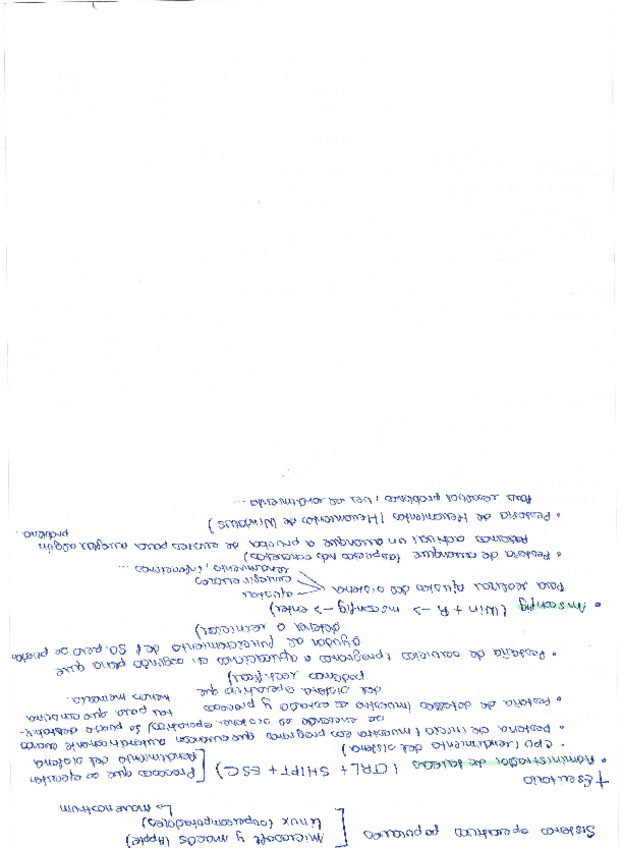 Sistemas operativos populares [ Microsoft y macOS (Apple)
Linux (supercomputadores)
↳ marenostrum
+ Escritorio
• Administrador de tareas (CTRL + SHIFT + ESC) [ Procesos que se ejecutan
Rendimiento del sistema
• CPU (rendimiento del sistema)
• Pestaña de inicio (muestra los programas que arrancan automáticamente cuando
se enciende el sistema operativo) Se puede deshabili-
tar para que consuma
menos memoria.
• Pestaña detalles (muestra el estado y procesos
del sistema operativo que
podemos rectificar)
• Pestaña de servicios (programas o aplicaciones en segundo plano que
ayudan al funcionamiento del SO, pero se pueden
detener o reiniciar)
• Msconfig (Win + R -> msconfig -> enter)
Para realizar ajustes del sistema < ajustar
corregir errores
rendimiento, infecciones ...
• Pestaña de arranque (aspectos más concretos)
Podemos activar un arranque a prueba de errores para arreglar algún
problema.
• Pestaña de Herramientas (Herramientas de Windows)
Para resolver problemas, ver el rendimiento ...